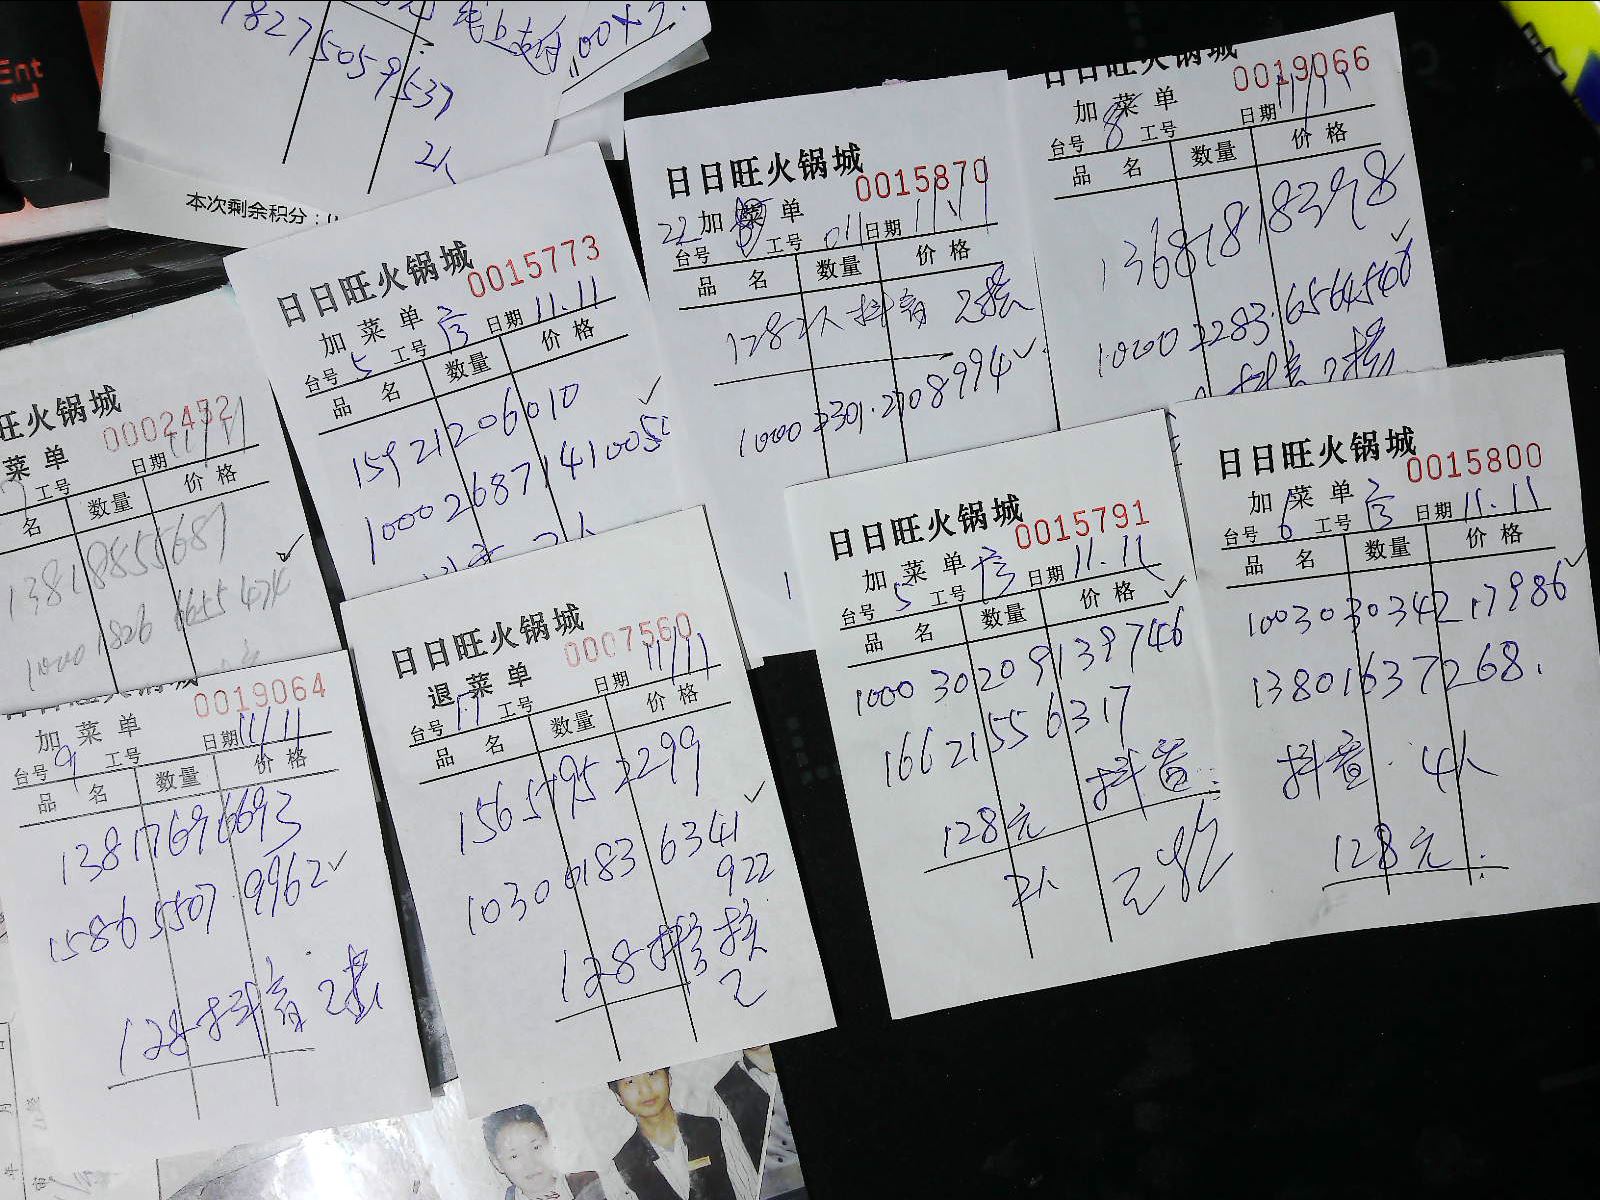 Ent
1827505 9537
2人
线上支付
本次剩余积分:
旺火锅城
0002452
菜单
日期 11/11
工号
名 数量 价格
13818855687
日日旺火锅城
0015773
加菜单
台号 5 工号 日期 11.11
品名 数量 价格
15921206010
日日旺火锅城
0015870
22 加菜单
台号 工号 011 日期 11\11
品名 数量 价格
128 2人 抖音 已核
1000 2301.2708994
日日旺火锅城
0019066
加菜单
台号 8 工号 日期 11/11
品名 数量 价格
13681818398
0019064
加菜单
台号 9 工号 日期 11/11
品名 数量 价格
13817696693
15865507.9962
128 抖音 已核
日日旺火锅城
0007560
退菜单
台号 17 工号 日期 11/11
品名 数量 价格
15657952299
10300183 6341
922
128 抖音 核
已
日日旺火锅城
0015791
加菜单
台号 5 工号 日期 11.11
品名 数量 价格
1000 30209139746
16621556317
抖音
128元
2人
日日旺火锅城
0015800
加菜单
台号 6 工号 日期 11.11
品名 数量 价格
10030303421.7986
13801637268.
抖音. 4人
128元.